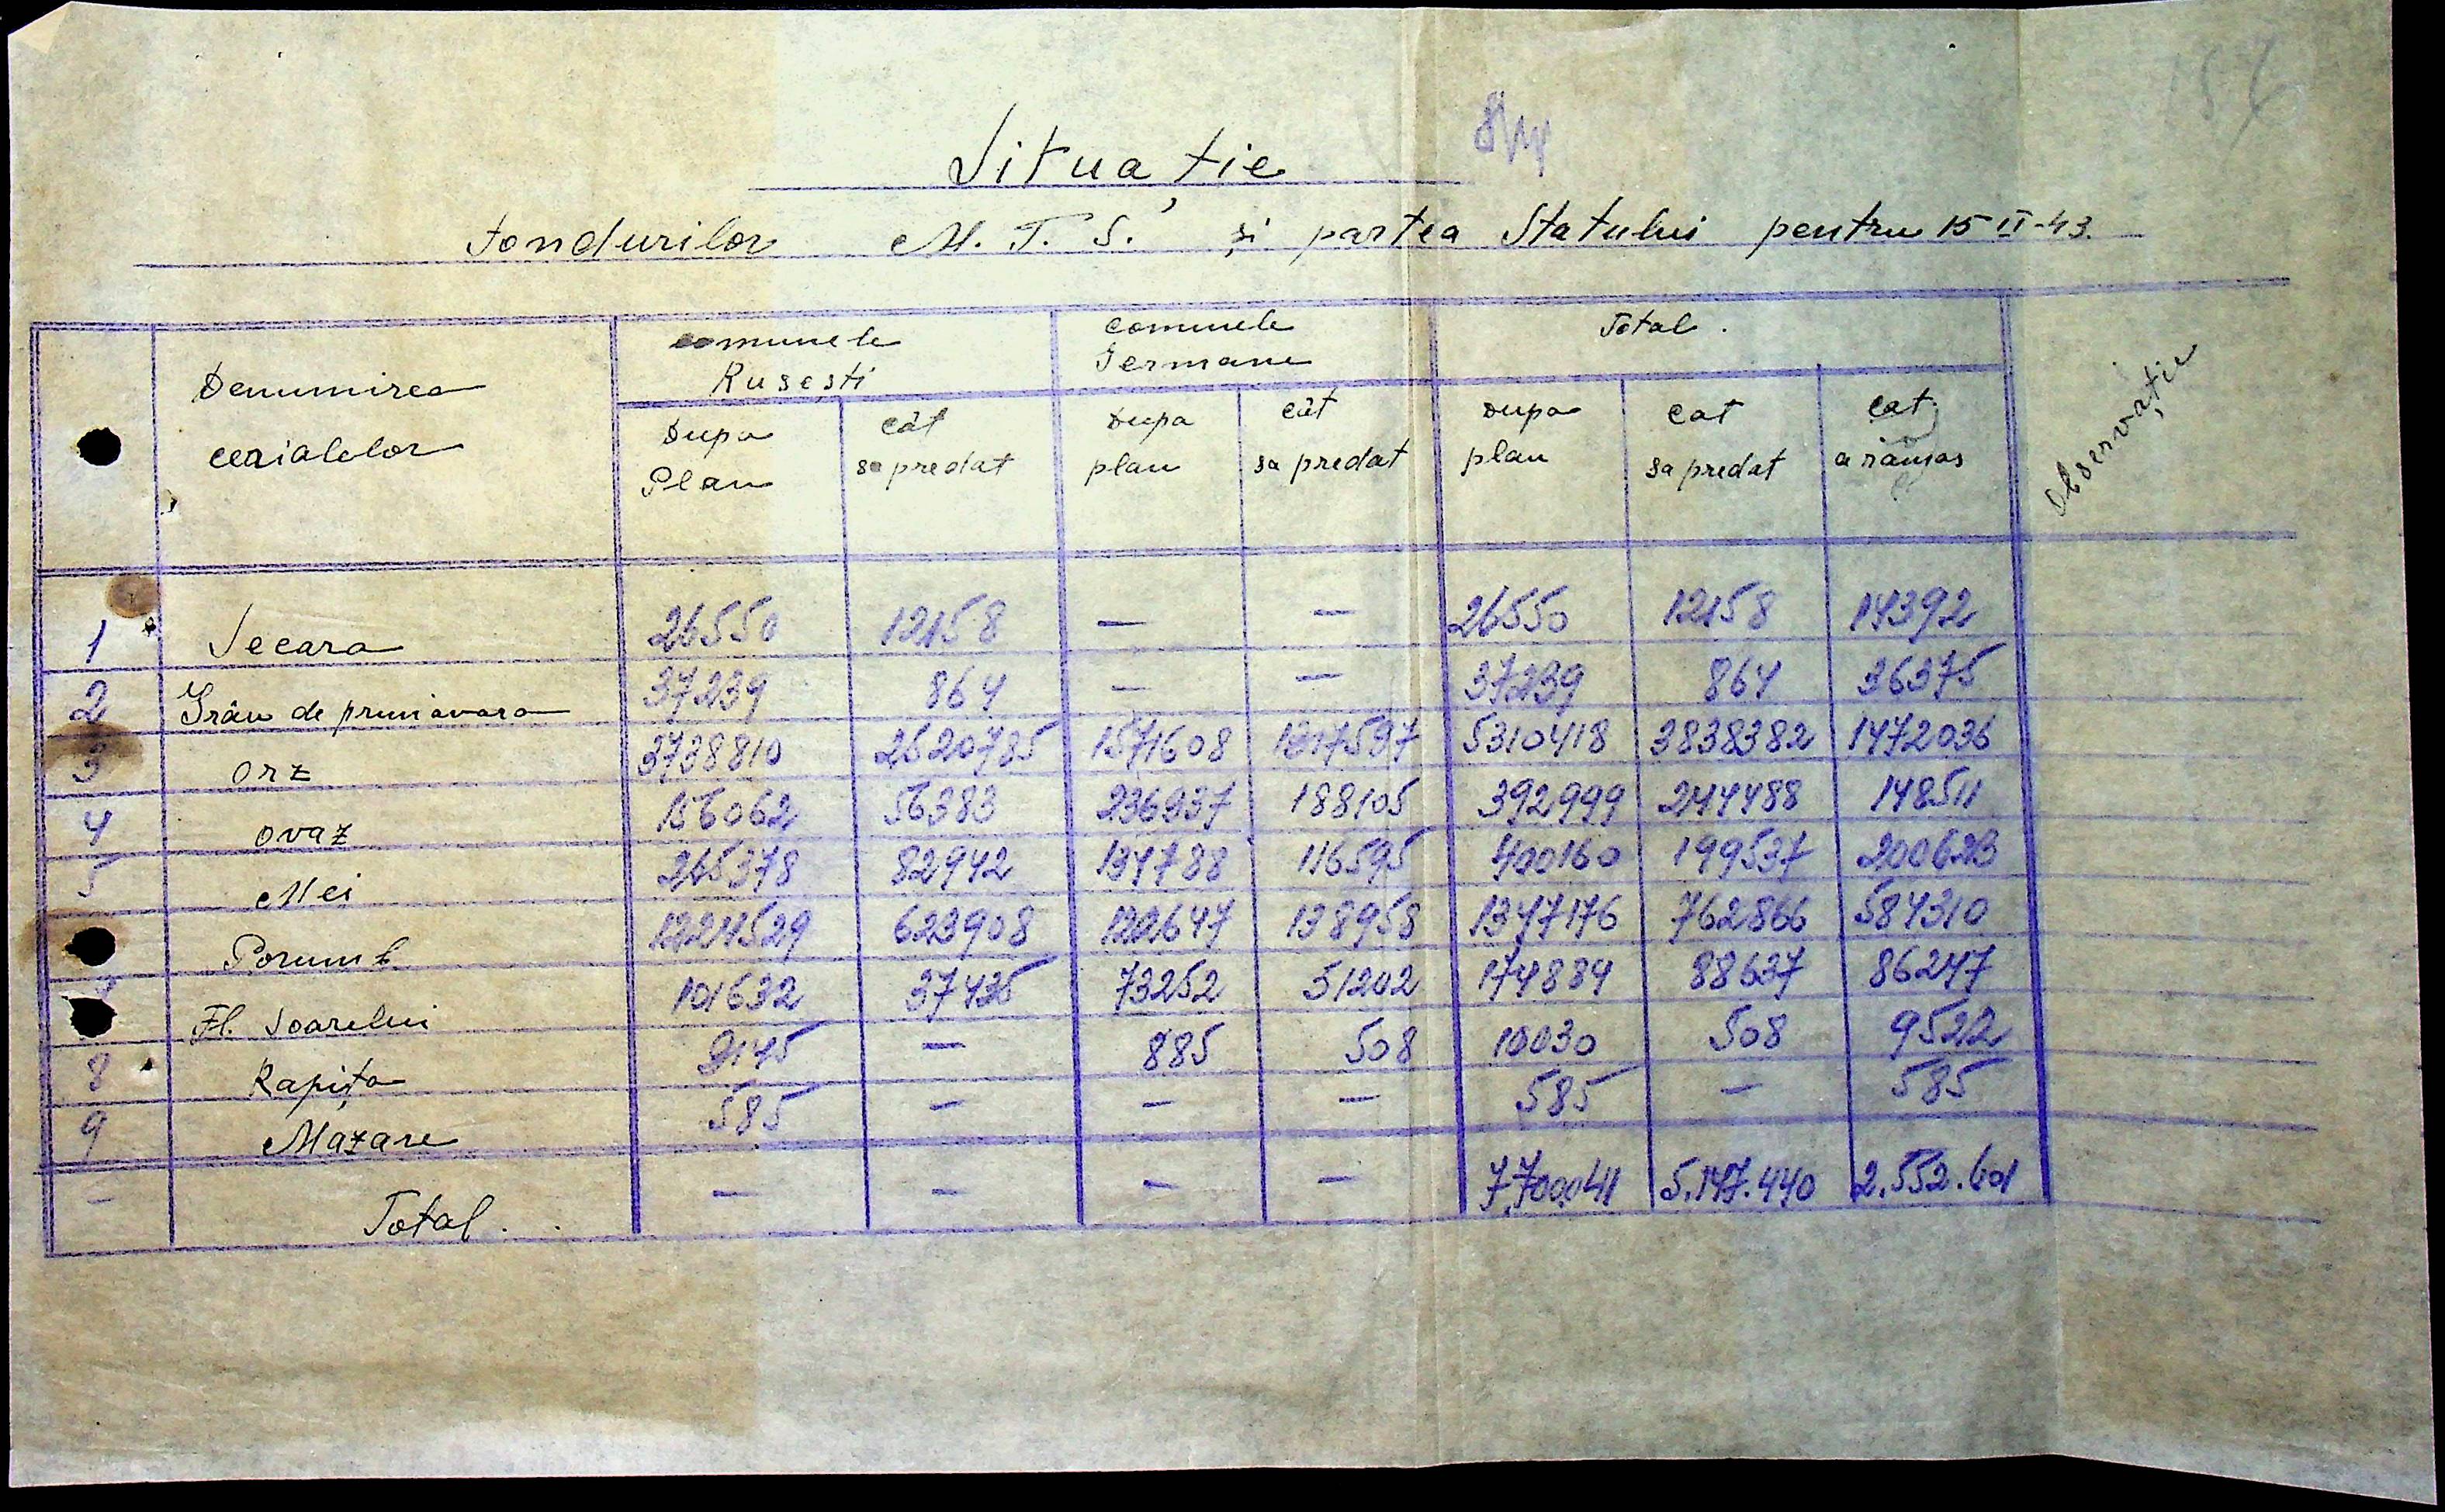 154
Situație
fondurilor M. T. S. și partea Statului pentru 15 II-43.
Denumirea cerialelor | comunele Rusești | comunele Germane | Total. | Observație
Dupa Plan | cât sa predat | Dupa plan | cât sa predat | Dupa plan | cat sa predat | cat a rămas
1 Secara 26550 12158 — — 26550 12158 14392
2 Grâu de primavara 37239 864 — — 37239 864 36375
3 orz 3738810 2520785 1571608 1317597 5310418 3838382 1472036
4 ovaz 156062 56383 236937 188105 392999 244488 148511
5 Mei 265378 82942 134788 116595 400160 199537 200623
Porumb 1224529 623908 122647 138958 1347176 762866 584310
Fl. Soarelui 101632 37435 73252 51202 174884 88637 86247
8 Rapița 9145 — 885 508 10030 508 9522
9 Mazare 585 — — — 585 — 585
— Total. — — — — 7.700041 5.147.440 2.552.601